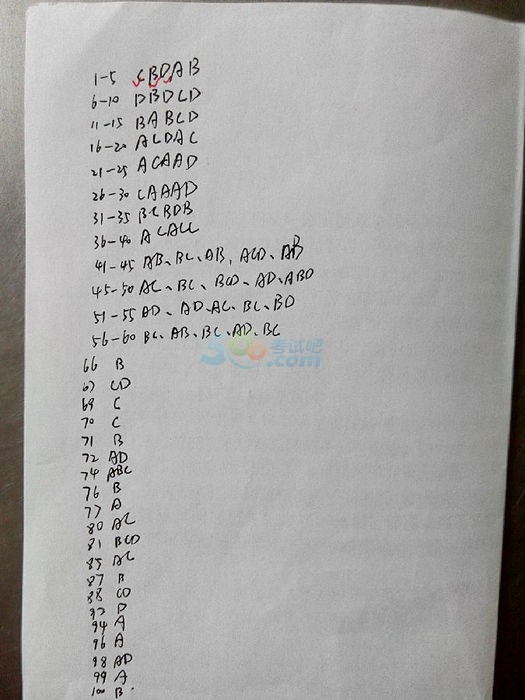 1-5 CBDAB
6-10 DBDCD
11-15 BABCD
16-20 ACDAC
21-25 ACAAD
26-30 CAAAD
31-35 BCBDB
36-40 ACACC
41-45 AB、BC、AB、ACD、AB
45-50 AC、BC、BCD、AD、ABD
51-55 AD、AD、AC、BC、BD
56-60 BC、AB、BC、AD、BC
考试吧
66 B
67 CD
69 C
70 C
71 B
72 AD
74 ABC
76 B
77 A
80 AC
81 BCD
85 AC
87 B
88 CD
D
94 A
96 A
98 AD
99 A
100 B.